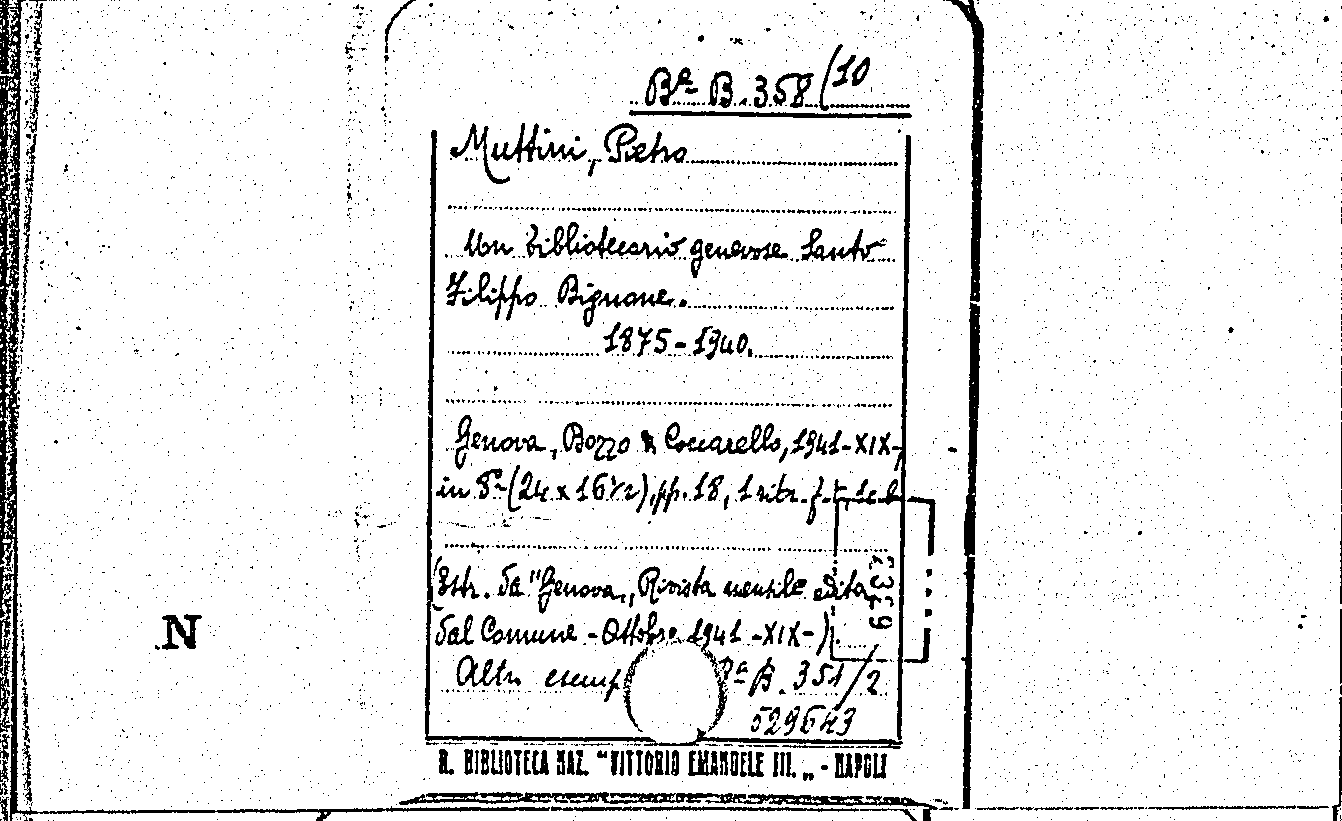 Bª B.358/10
Muttini, Pietro
Un bibliotecario genovese Santo
Filippo Bignone.
1875-1940.
Genova, Bozzo & Coccarello, 1941-XIX-,
in 8º (24 x 16½), pp. 18, 1 ritr. f.
(Estr. da "Genova,, Rivista mensile edita
dal Comune - Ottobre 1941 -XIX-).
Altro esemp Bª B. 351/2
529643
R. BIBLIOTECA NAZ. "VITTORIO EMANUELE III.,, - NAPOLI
N